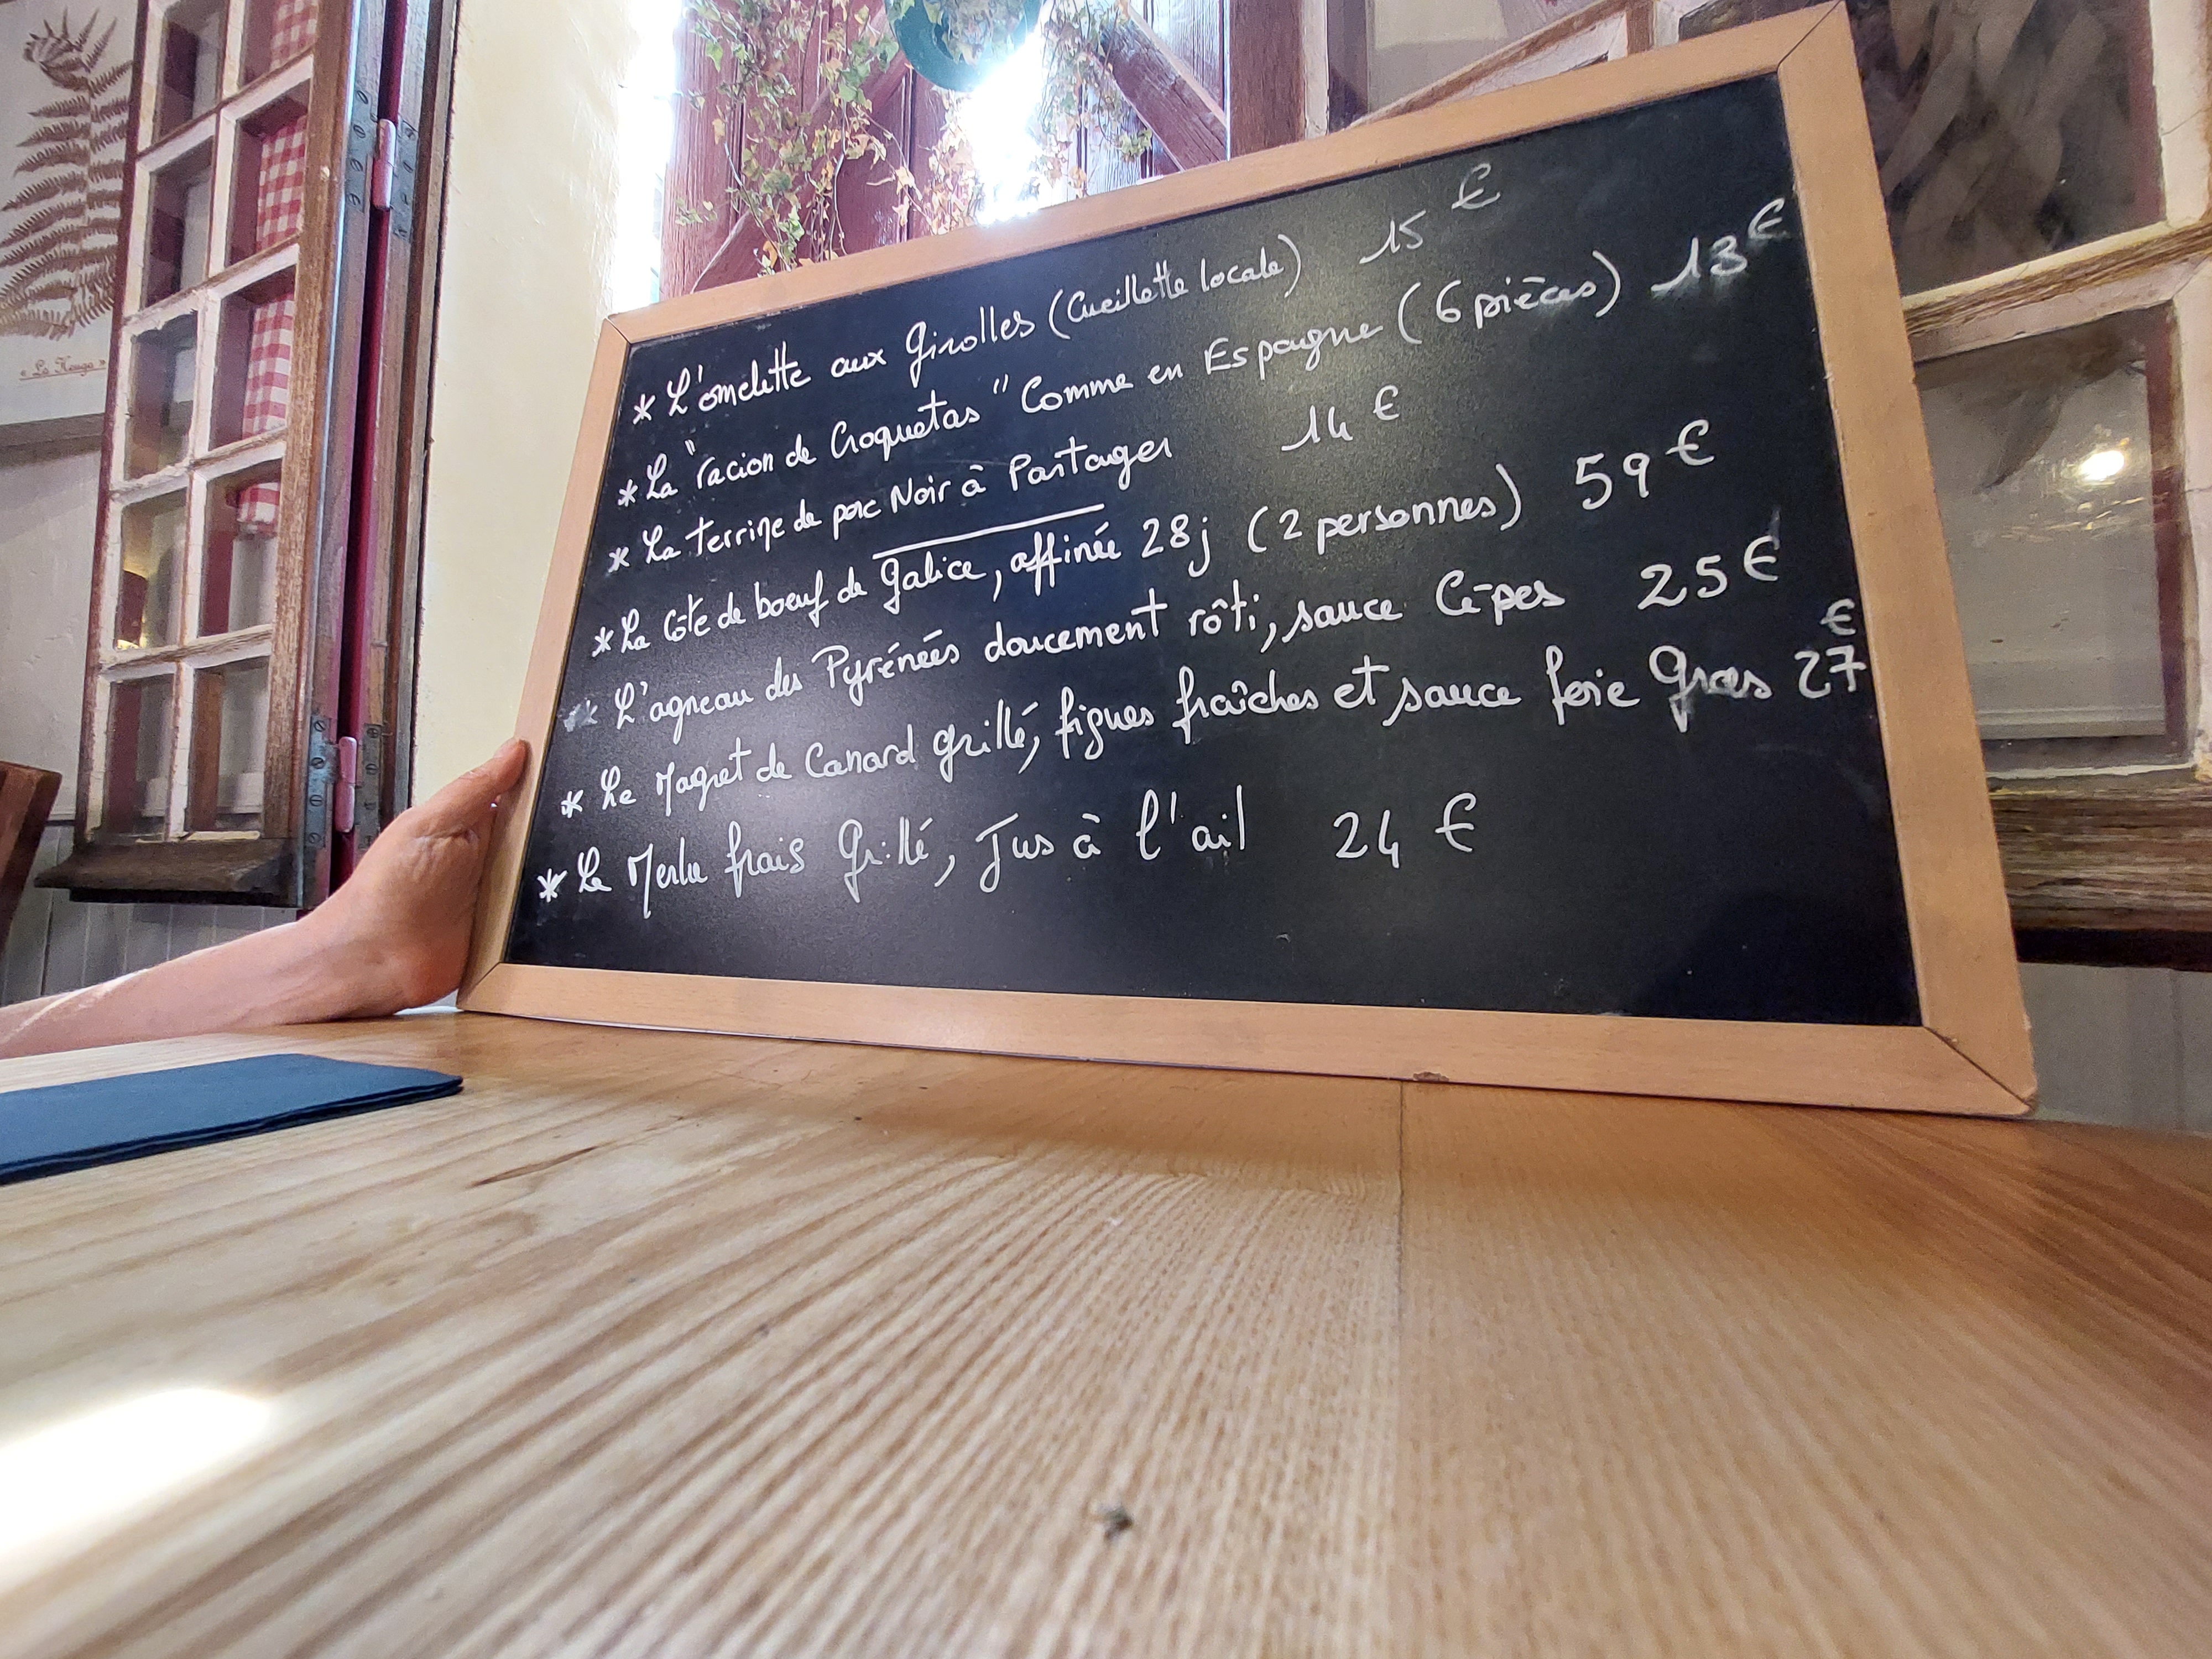 * L'omelette aux Girolles (Cueillette locale) 15 €
* La "racion de Croquetas" Comme en Espagne (6 pièces) 13 €
* La terrine de porc Noir à Partager 14 €
* La Côte de boeuf de Galice, affinée 28j (2 personnes) 59 €
* L'agneau des Pyrénées doucement rôti, sauce Cêpes 25 €
* Le Magret de Canard grillé, figues fraîches et sauce foie Gras 27 €
* Le Merlu frais Grillé, Jus à l'ail 24 €